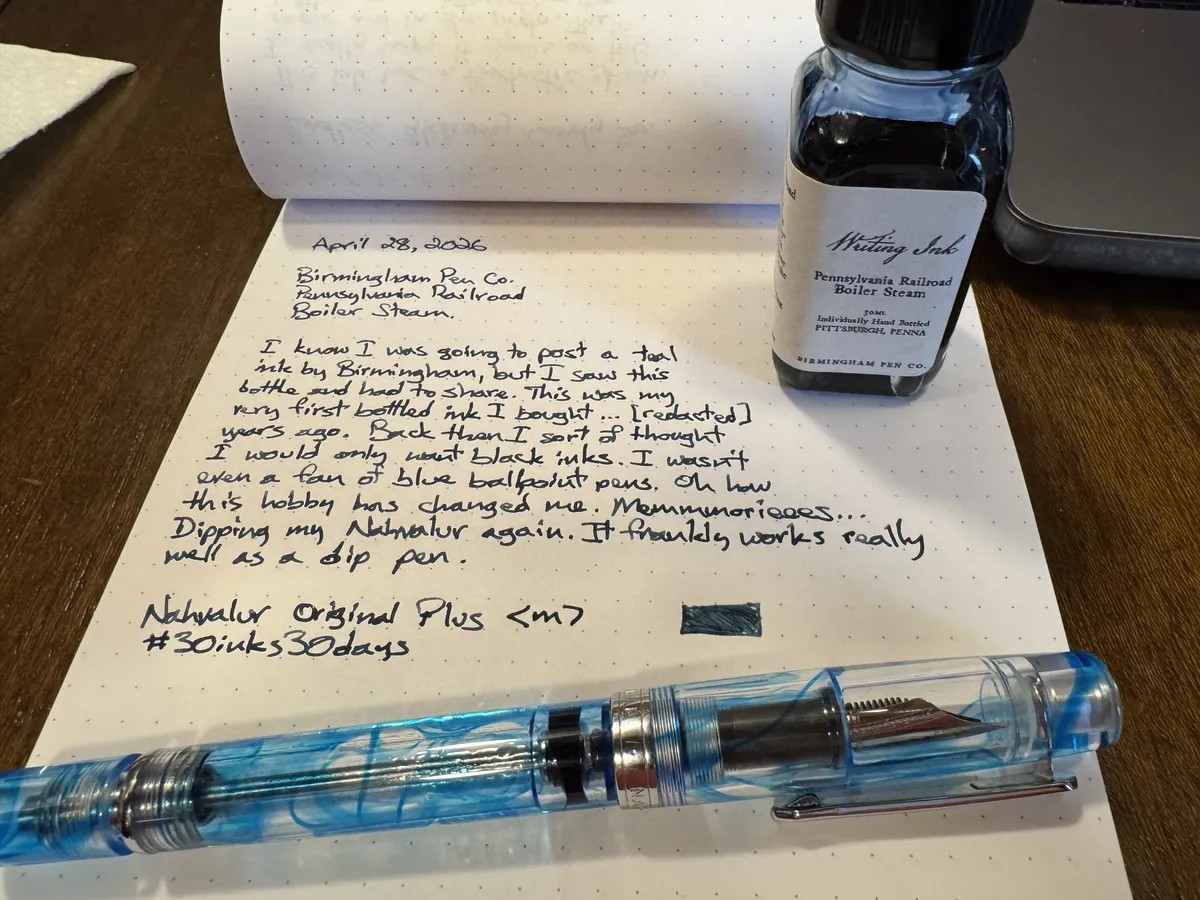 April 28, 2026
Birmingham Pen Co.
Pennsylvania Railroad
Boiler Steam.
I know I was going to post a teal
ink by Birmingham, but I saw this
bottle and had to share. This was my
very first bottled ink I bought... [redacted]
years ago. Back then I sort of thought
I would only want black inks. I wasn't
even a fan of blue ballpoint pens. Oh how
this hobby has changed me. Memmmorieees...
Dipping my Nahvalur again. It frankly works really
well as a dip pen.
Nahvalur Original Plus <m>
#30inks30days
Writing Ink
Pennsylvania Railroad
Boiler Steam
30ML
Individually Hand Bottled
PITTSBURGH, PENNA
BIRMINGHAM PEN CO.